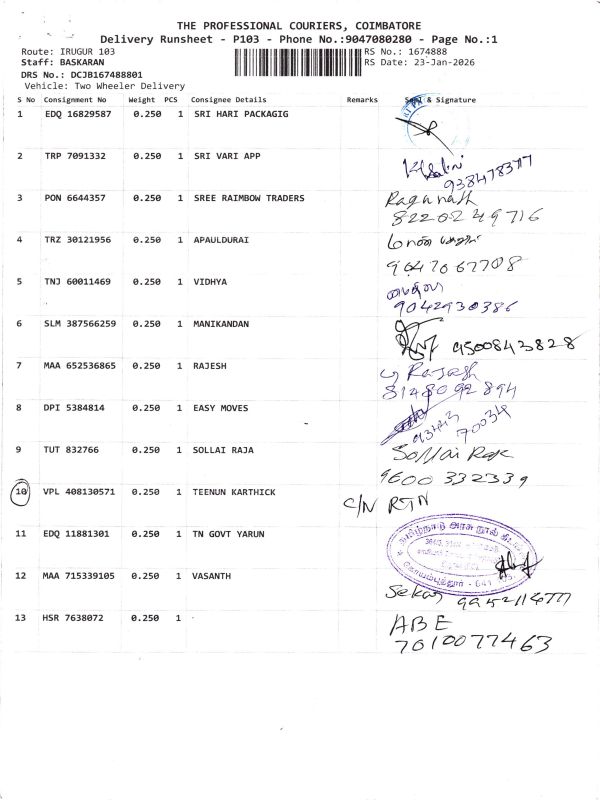 THE PROFESSIONAL COURIERS, COIMBATORE
Delivery Runsheet - P103 - Phone No.:9047080280 - Page No.:1
Route: IRUGUR 103 RS No.: 1674888
Staff: BASKARAN RS Date: 23-Jan-2026
DRS No.: DCJB167488801
Vehicle: Two Wheeler Delivery
S No Consignment No Weight PCS Consignee Details Remarks & Signature
1 EDQ 16829587 0.250 1 SRI HARI PACKAGIG
2 TRP 7091332 0.250 1 SRI VARI APP
3 PON 6644357 0.250 1 SREE RAIMBOW TRADERS Ragunath
8220249716
4 TRZ 30121956 0.250 1 APAULDURAI
9047067708
5 TNJ 60011469 0.250 1 VIDHYA
9042930386
6 SLM 387566259 0.250 1 MANIKANDAN 9500843828
7 MAA 652536865 0.250 1 RAJESH Rajesh
8148092894
8 DPI 5384814 0.250 1 EASY MOVES
70034
9 TUT 832766 0.250 1 SOLLAI RAJA Sollai Raja
9600 332339
10 VPL 408130571 0.250 1 TEENUN KARTHICK C/N RTN
11 EDQ 11881301 0.250 1 TN GOVT YARUN தமிழ்நாடு அரசு நூல் கிடங்கு
கோயம்புத்தூர் - 641
12 MAA 715339105 0.250 1 VASANTH Sekar
13 HSR 7638072 0.250 1 ABE
7010077463